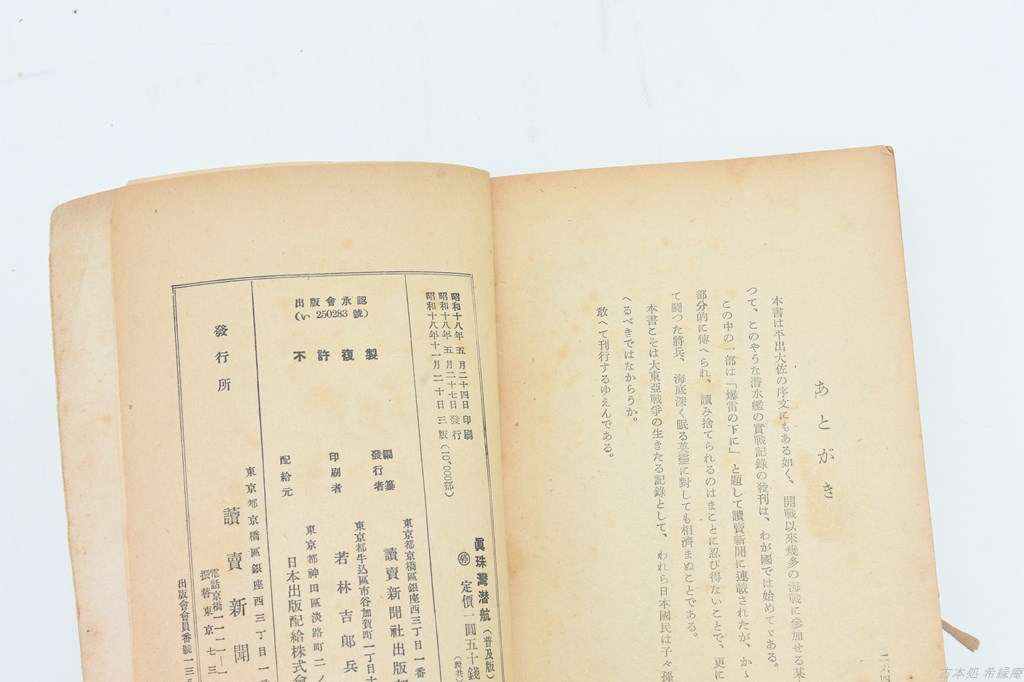 あとがき
本書は平出大佐の序文にもある如く、開戰以來幾多の海戰に參加せる某
つて、このやうな潜水艦の實戰記錄の發刊は、わが國では始めてゞある。
この中の一部は「爆雷の下に」と題して讀賣新聞に連載されたが、かゝ
部分的に傳へられ、讀み捨てられるのはまことに忍び得ないことで、更に
て闘つた將兵、海底深く眠る英靈に對しても相濟まぬことである。
本書こそは大東亞戰爭の生きたる記錄として、われら日本國民は子々孫
へるべきではなからうか。
敢へて刊行するゆえんである。
二六四
眞珠灣潜航(普及版)
定價一圓五十錢
昭和十八年五月二十四日印刷
昭和十八年五月二十七日發行
昭和十八年十一月二十日三版(10,000部)
出版會承認
(い250283號)
不許複製
編纂
發行者
東京都京橋區銀座西三丁目一番
讀賣新聞社出版
印刷者
東京都牛込區市谷加賀町一丁目十
若林吉郎兵
配給元
東京都神田區淡路町二ノ
日本出版配給株式會
發行所
東京都京橋區銀座西三丁目一
讀賣新聞
電話京橋一一一一
振替東京七三
出版會會員番號一三
古本処 希縁庵